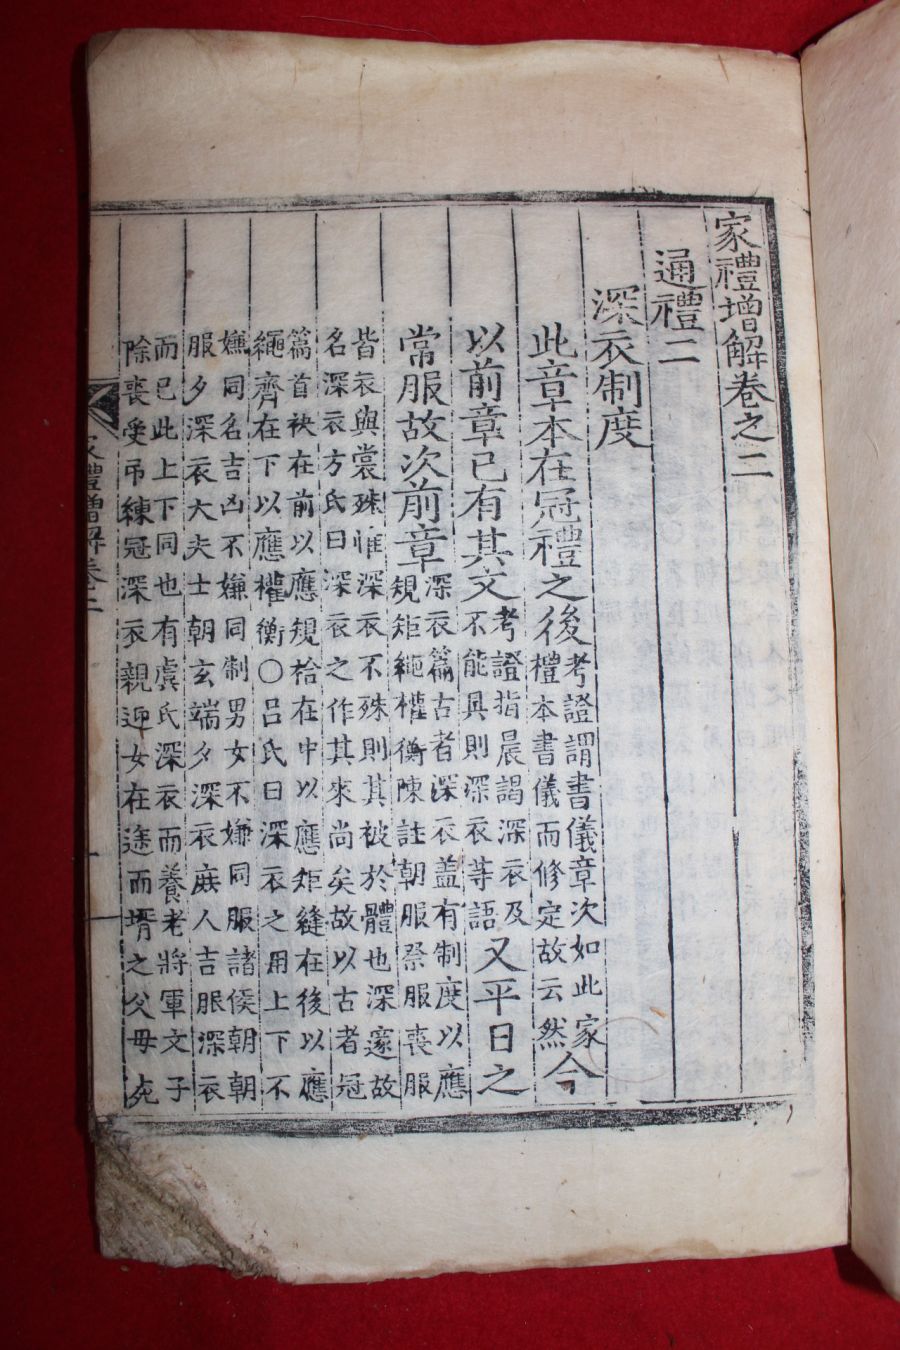 家禮增解卷之二
通禮二
深衣制度
此章本在冠禮之後考證謂書儀章次如此家禮本書儀而修定故云然今
以前章已有其文考證指晨謁深衣及不能具則深衣等語又平日之
常服故次前章深衣篇古者深衣盖有制度以應
規矩繩權衡陳註朝服祭服喪服
皆衣與裳殊惟深衣不殊則其被於體也深邃故
名深衣方氏曰深衣之作其來尚矣故以古者冠
篇首袂在前以應規袷在中以應矩縫在後以應
繩齊在下以應權衡〇呂氏曰深衣之用上下不
嫌同名吉凶不嫌同制男女不嫌同服諸侯朝朝
服夕深衣大夫士朝玄端夕深衣庶人吉服深衣
而已此上下同也有虞氏深衣而養老將軍文子
除喪受弔練冠深衣親迎女在途而壻之父母死
家禮增解卷二